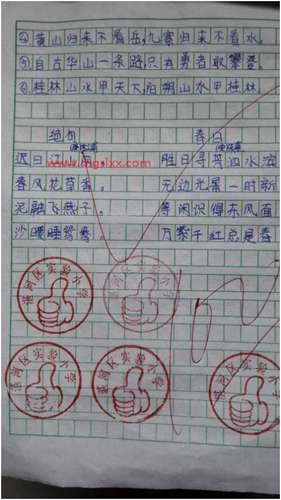 ④黄山归来不看岳,九寨归来不看水。
⑤自古华山一条路,只有勇者敢攀登。
⑥桂林山水甲天下,阳朔山水甲桂林。
绝句 春日
迟日江 胜日寻芳泗水滨
春风花草香。 无边光景一时新
泥融飞燕子, 等闲识得东风面
沙暖睡鸳鸯 万紫千红总是春
河区实验小学
河区实验小学
河区实验小学
河区实验小学
河区实验小学